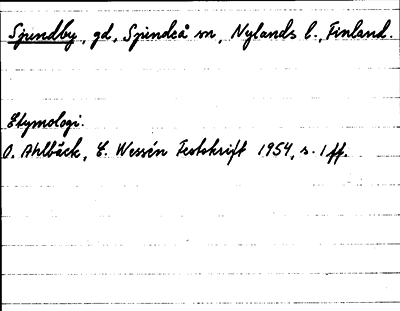 Sjundby, gd, Sjundeå sn, Nylands l., Finland.
Etymologi.
O. Ahlbäck, E. Wessén Festskrift 1954, s. 1 ff.